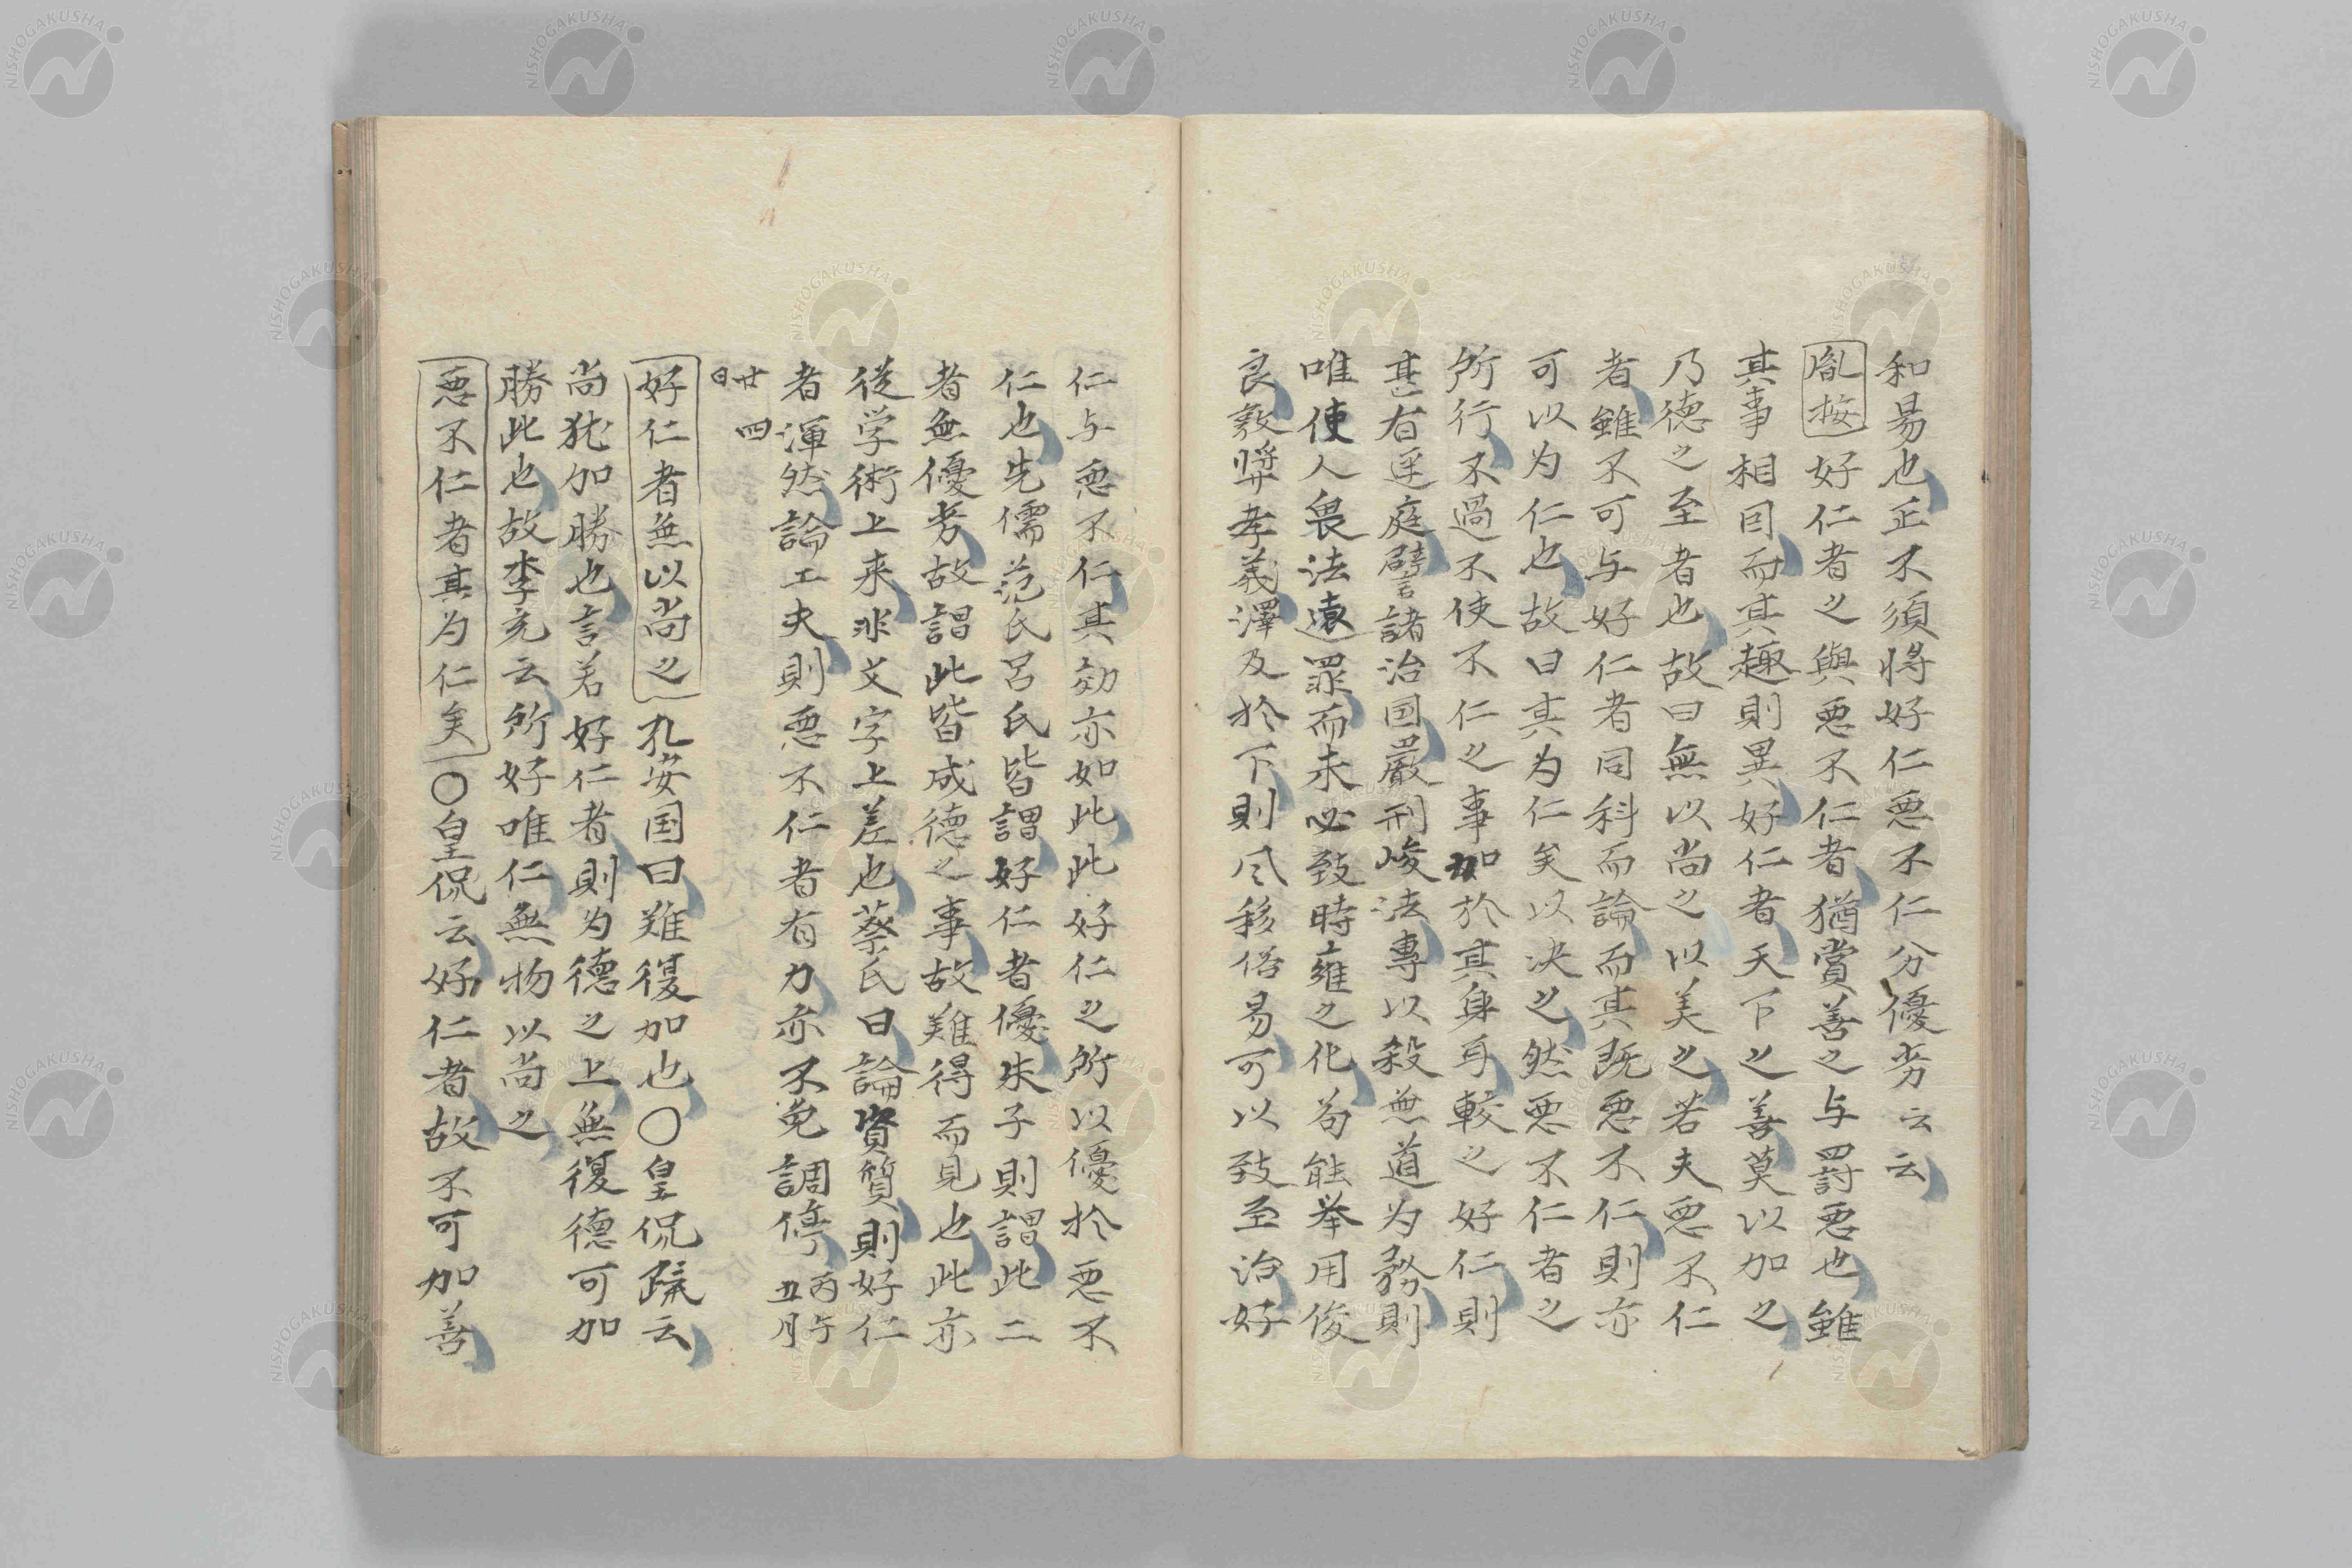 和易也正不須将好仁悪不仁分優劣云云
胤按好仁者之與悪不仁者猶賞善之与罰悪也雖
其事相因而其趣則異好仁者天下之善莫以加之
乃徳之至者也故曰無以尚之以美之若夫悪不仁
者雖不可与好仁者同科而論而其既悪不仁則亦
可以为仁也故曰其为仁矣以决之然悪不仁者之
所行不過不使不仁之事加於其身耳較之好仁則
甚有逕庭譬諸治国嚴刑峻法專以殺無道为務則
唯使人畏法遠罪而未必致時雍之化苟能举用俊
良敦奨孝義澤及於下則风移俗易可以致至治好
仁与悪不仁其効亦如此此好仁之所以優於悪不
仁也先儒范氏呂氏皆謂好仁者優朱子則謂此二
者無優劣故謂此皆成德之事故難得而見也此亦
従学術上来非文字上差也蔡氏曰論資質則好仁
者渾然論工夫則悪不仁者有力亦不免調停 丙午五月
廿四日
好仁者無以尚之 孔安国曰難復加也〇皇侃疏云
尚犹加勝也言若好仁者則为德之上無復德可加
勝此也故李充云所好唯仁無物以尚之
悪不仁者其为仁矣〇皇侃云好仁者故不可加善
NISHOGAKUSHA